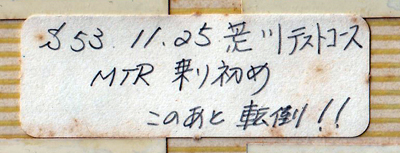 S53.11.25 荒川テストコース
MTR 乗り初め
このあと転倒!!